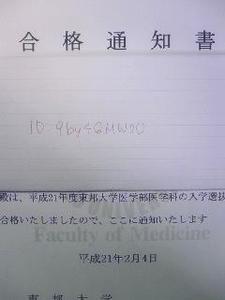 合格通知書
ID:9by+GMW20
殿は、平成21年度東邦大学医学部医学科の入学選抜
合格いたしましたので、ここに通知いたします
Faculty of Medicine
平成21年2月4日
東邦大学